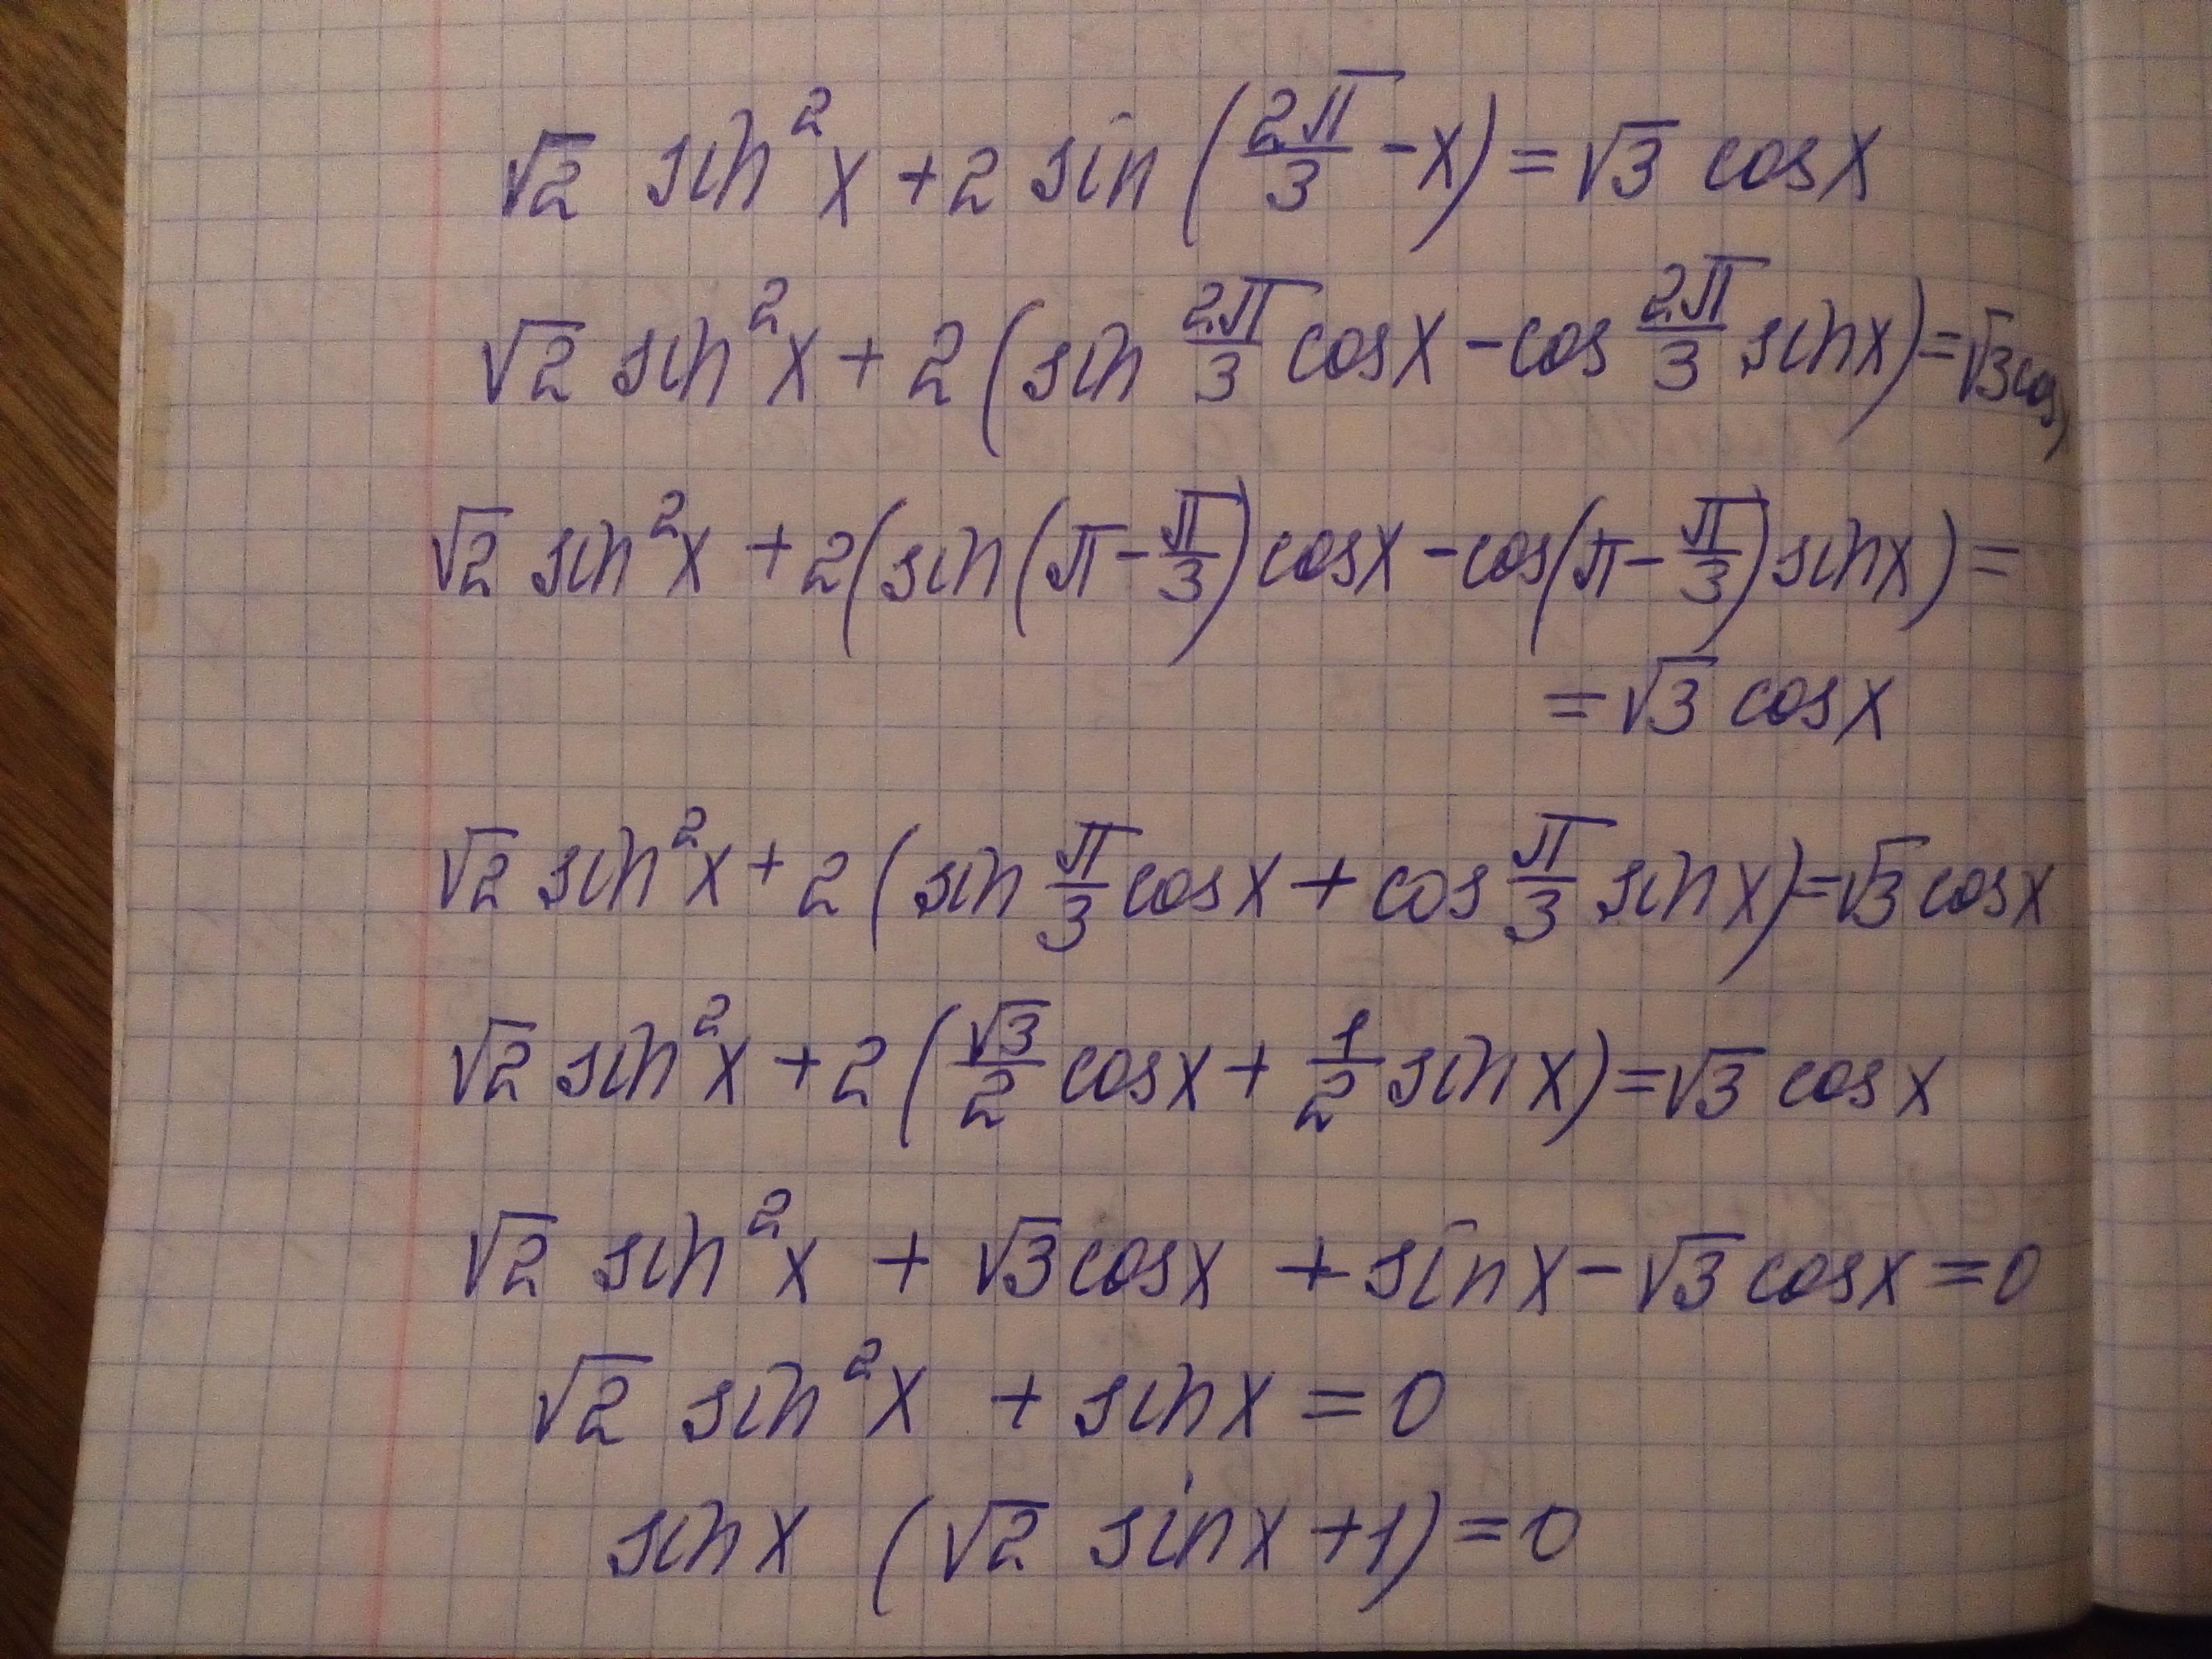 √2 sin²x + 2 sin (2π/3 - x) = √3 cos x
√2 sin²x + 2 (sin 2π/3 cos x - cos 2π/3 sin x) = √3 cos x
√2 sin²x + 2 (sin (π - π/3) cos x - cos (π - π/3) sin x) =
= √3 cos x
√2 sin²x + 2 (sin π/3 cos x + cos π/3 sin x) = √3 cos x
√2 sin²x + 2 (√3/2 cos x + 1/2 sin x) = √3 cos x
√2 sin²x + √3 cos x + sin x - √3 cos x = 0
√2 sin²x + sin x = 0
sin x (√2 sin x + 1) = 0